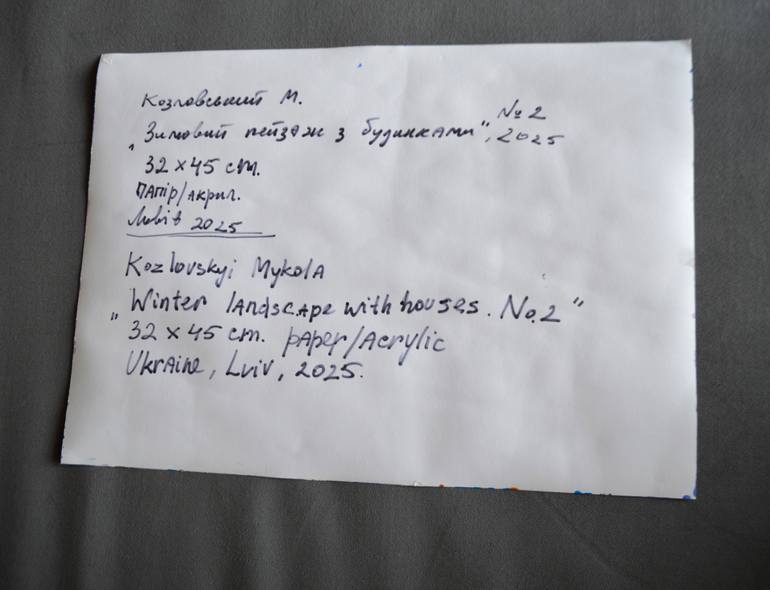 Козловський М.
„Зимовий пейзаж з будинками", №2, 2025
32 x 45 cm.
папір/акрил.
Львів 2025
Kozlovskyi Mykola
„Winter landscape with houses. No.2"
32 x 45 cm. paper/Acrylic
Ukraine, Lviv, 2025.